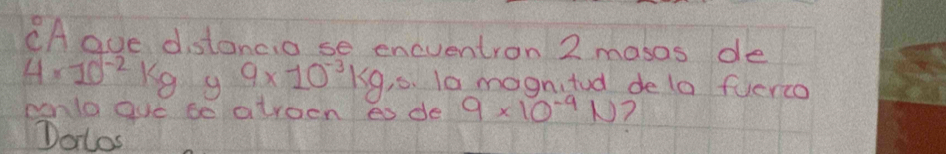 ¿A que distancia se encuentran 2 masas de
4 x 10⁻² Kg y 9 x 10⁻³ Kg, si la magnitud de la fuerza
con la que se atraen es de 9 x 10⁻⁹ N?
Datos